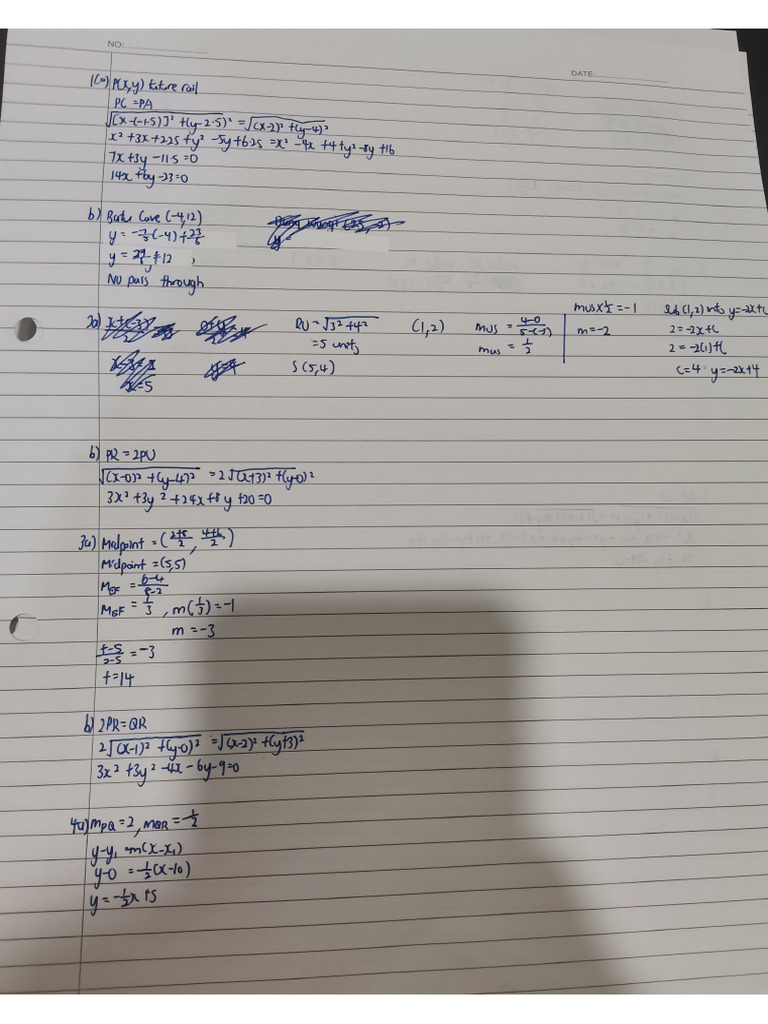 NO:
DATE:
1(a) P(x,y) future rail
PC = PA
√[x-(-1.5)]² + (y-2.5)² = √(x-2)² + (y-4)²
x² + 3x + 2.25 + y² - 5y + 6.25 = x² - 4x + 4 + y² - 8y + 16
7x + 3y - 11.5 = 0
14x + 6y - 23 = 0
b) Batu Cave (-4,12)
y = -7/3(-4) + 23/6
y = 79/6 ≠ 12
No pass through
2a)
RU = √3² + 4²
= 5 units
S(5,4)
(1,2)
mus = 4-0/5-(-3)
mus = 1/2
mus x 1/2 = -1
m = -2
Sub (1,2) into y = -2x + c
2 = -2x + c
2 = -2(1) + c
c = 4 y = -2x + 4
b) PR = 2PU
√(x-0)² + (y-4)² = 2√(x+3)² + (y-0)²
3x² + 3y² + 24x + 8y + 20 = 0
3a) Midpoint = (2+8/2, 4+6/2)
Midpoint = (5,5)
MGF = 6-4/8-2
MGF = 1/3, m(1/3) = -1
m = -3
t-5/2-5 = -3
t = 14
b) 2PR = QR
2√(x-1)² + (y-0)² = √(x-2)² + (y+3)²
3x² + 3y² - 4x - 6y - 9 = 0
4a) mPQ = 2, mQR = -1/2
y - y₁ = m(x - x₁)
y - 0 = -1/2(x - 10)
y = -1/2x + 5